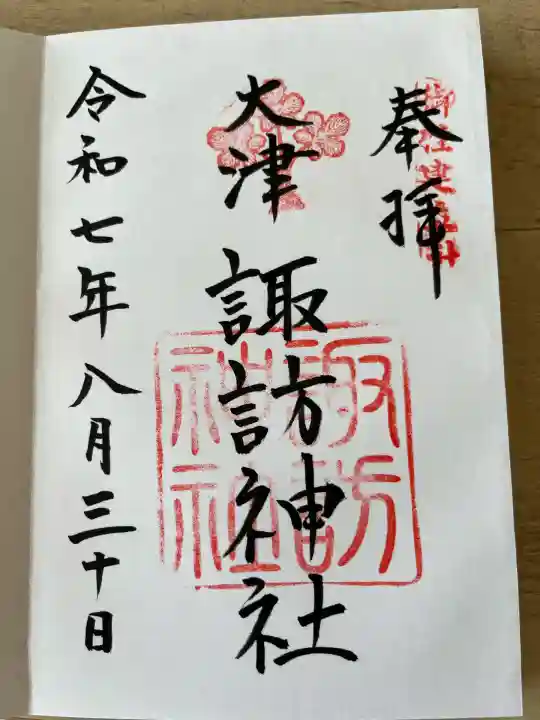 奉拝
大津
諏訪神社
諏訪
神社
令和七年八月三十日